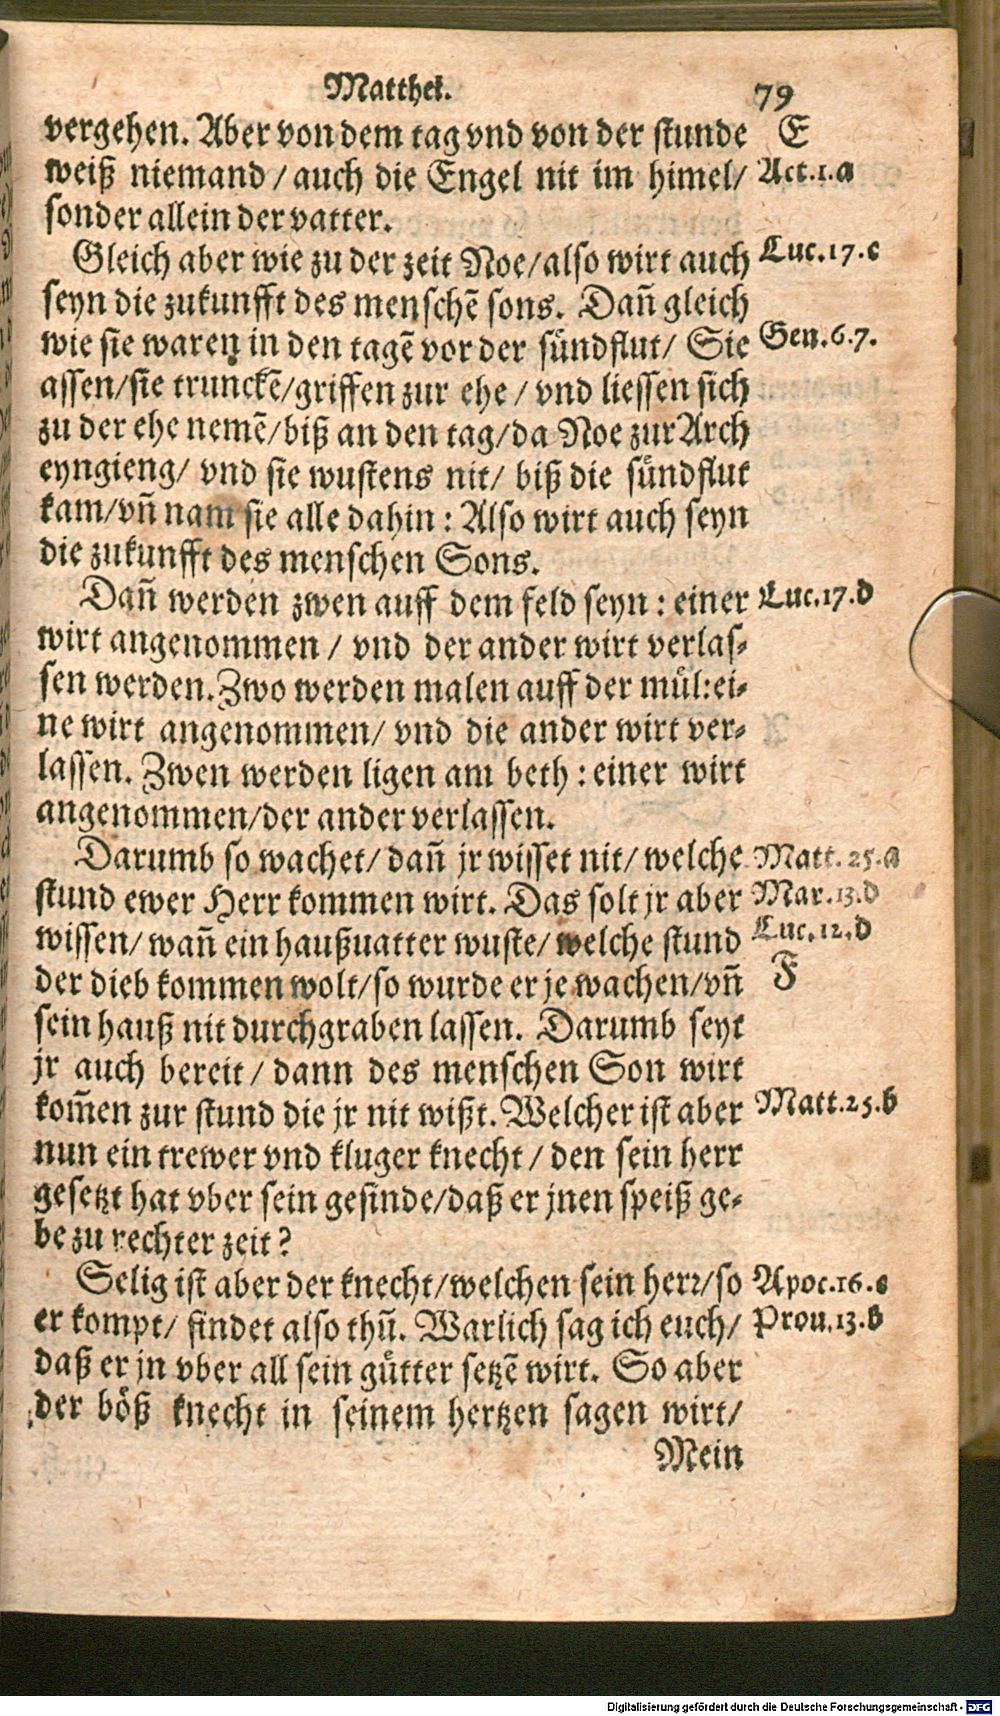 Matthei. 79
vergehen. Aber von dem tag vnd von der stunde E
weiß niemand / auch die Engel nit im himel/ Act.1.a
sonder allein der vatter.
Gleich aber wie zu der zeit Noe/also wirt auch Luc.17.c
seyn die zukunfft des menschẽ sons. Dañ gleich
wie sie waren in den tagẽ vor der sündflut/ Sie Gen.6.7.
assen/sie trunckẽ/griffen zur ehe / vnd liessen sich
zu der ehe nemẽ/biß an den tag/da Noe zur Arch
eyngieng/ vnd sie wustens nit/ biß die sündflut
kam/vñ nam sie alle dahin : Also wirt auch seyn
die zukunfft des menschen Sons.
Dañ werden zwen auff dem feld seyn : einer Luc.17.d
wirt angenommen / vnd der ander wirt verlas-
sen werden. Zwo werden malen auff der mül:ei-
ne wirt angenommen/ vnd die ander wirt ver-
lassen. Zwen werden ligen am beth : einer wirt
angenommen/der ander verlassen.
Darumb so wachet/ dañ jr wisset nit/ welche Matt. 25.a
stund ewer Herr kommen wirt. Das solt jr aber Mar.13.d
wissen/ wañ ein haußuatter wuste/ welche stund Luc.12.d
der dieb kommen wolt/so wurde er je wachen/vñ F
sein hauß nit durchgraben lassen. Darumb seyt
jr auch bereit / dann des menschen Son wirt
kom̃en zur stund die jr nit wißt. Welcher ist aber Matt.25.b
nun ein trewer vnd kluger knecht / den sein herr
gesetzt hat vber sein gesinde/daß er jnen speiß ge-
be zu rechter zeit ?
Selig ist aber der knecht/welchen sein herr/so Apoc.16.c
er kompt/ findet also thũ. Warlich sag ich euch/ Prou.13.b
daß er jn vber all sein gütter setzẽ wirt. So aber
der böß knecht in seinem hertzen sagen wirt/
Mein
Digitalisierung gefördert durch die Deutsche Forschungsgemeinschaft - DFG